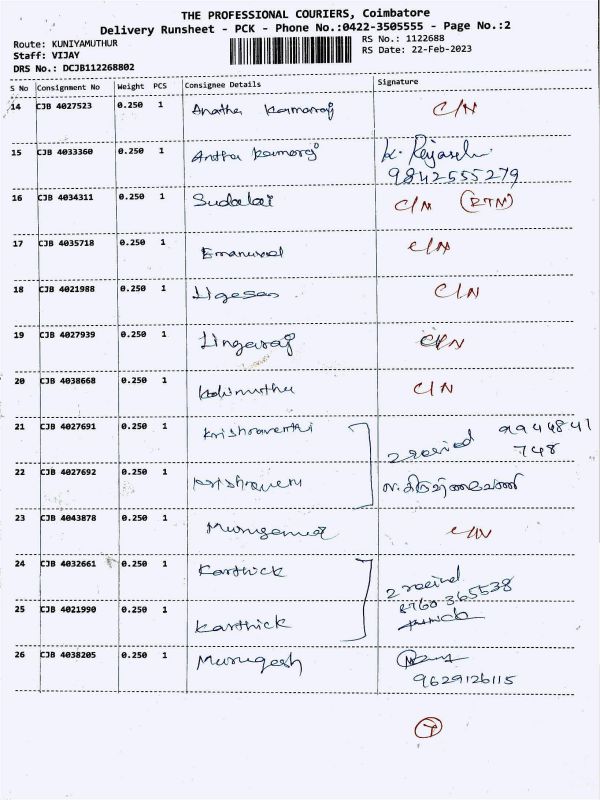 THE PROFESSIONAL COURIERS, Coimbatore
Delivery Runsheet - PCK - Phone No.:0422-3505555 - Page No.:2
Route: KUNIYAMUTHUR
RS No.: 1122688
Staff: VIJAY
RS Date: 22-Feb-2023
DRS No.: DCJB112268802
S No Consignment No Weight PCS Consignee Details Signature
14 CJB 4027523 0.250 1 C/N
15 CJB 4033360 0.250 1 K.
9842555279
16 CJB 4034311 0.250 1 Sudalai C/N (RTN)
17 CJB 4035718 0.250 1 C/N
18 CJB 4021988 0.250 1 C/N
19 CJB 4027939 0.250 1 Lingaraj C/N
20 CJB 4038668 0.250 1 C/N
21 CJB 4027691 0.250 1 Krishnaveni 2 9944841
748
22 CJB 4027692 0.250 1 Krishnaveni
23 CJB 4043878 0.250 1 C/N
24 CJB 4032661 0.250 1 Karthick 2
8760365538
25 CJB 4021990 0.250 1 Karthick
26 CJB 4038205 0.250 1 Murugesh
9629126115